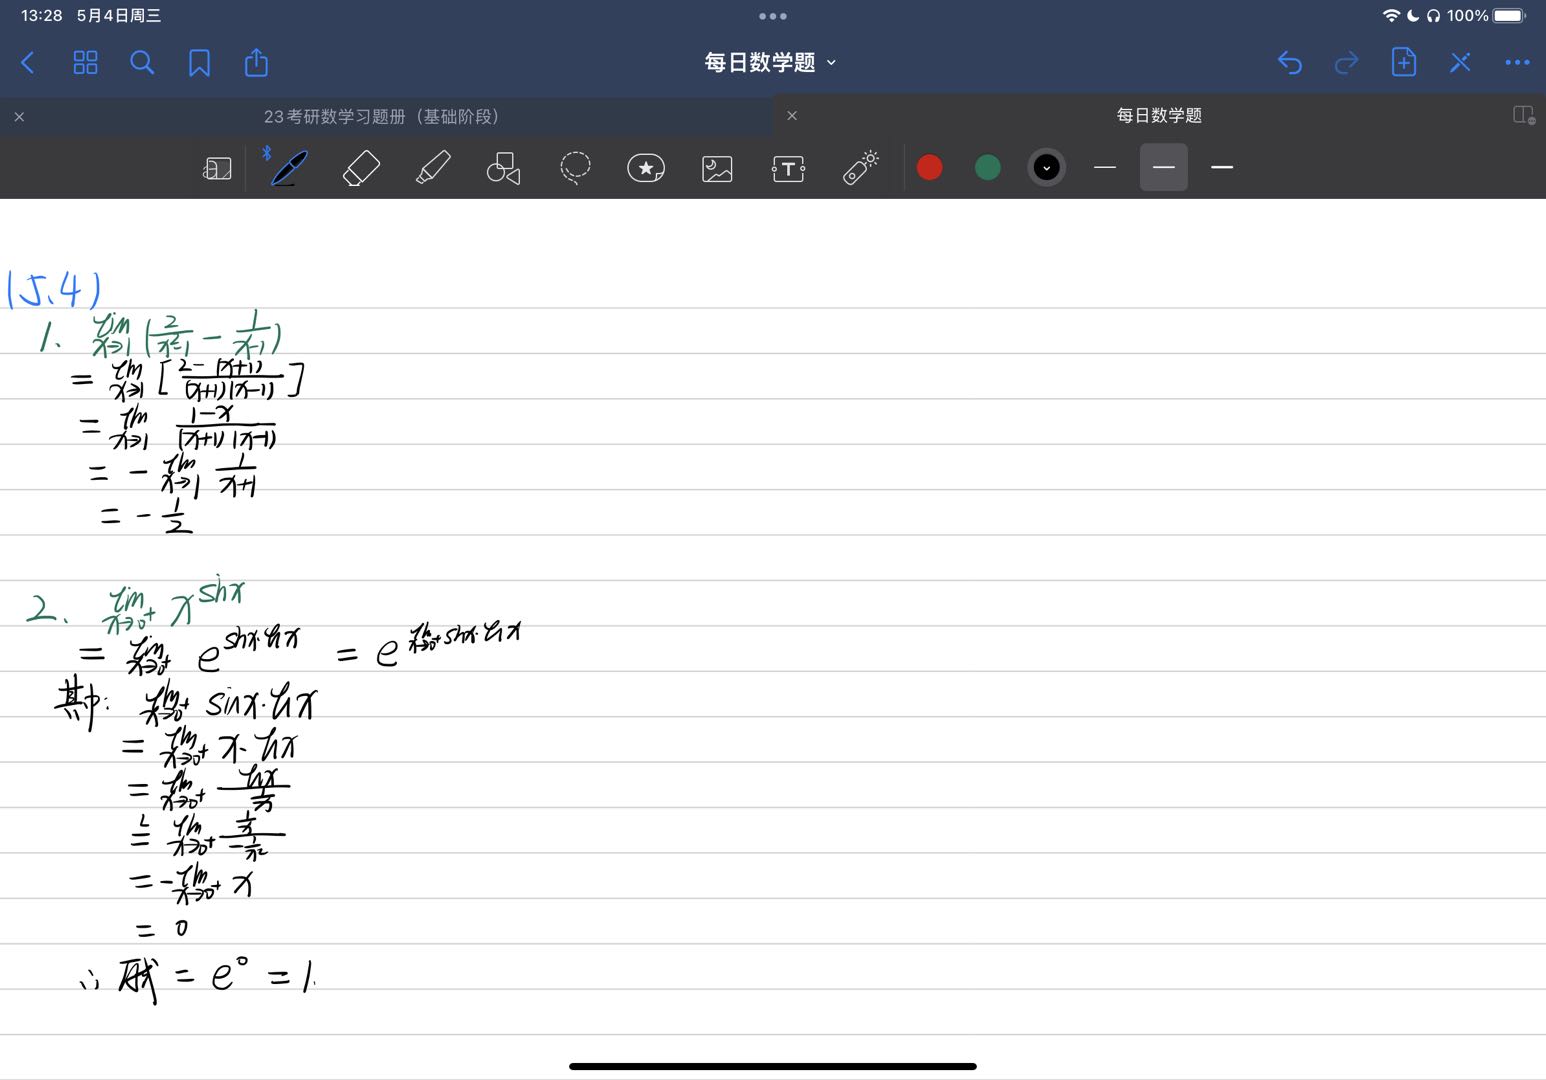 13:28 5月4日周三
100%
每日数学题
23考研数学习题册（基础阶段）
每日数学题
(5.4)
1. lim x→1 (2/(x²-1) - 1/(x-1))
= lim x→1 [(2-(x+1))/((x+1)(x-1))]
= lim x→1 (1-x)/((x+1)(x-1))
= - lim x→1 1/(x+1)
= - 1/2
2. lim x→0⁺ x^(sinx)
= lim x→0⁺ e^(sinx·lnx) = e^(lim x→0⁺ sinx·lnx)
其中: lim x→0⁺ sinx·lnx
= lim x→0⁺ x·lnx
= lim x→0⁺ lnx/(1/x)
L= lim x→0⁺ (1/x)/(-1/x²)
= -lim x→0⁺ x
= 0
∴ 原式 = e⁰ = 1.